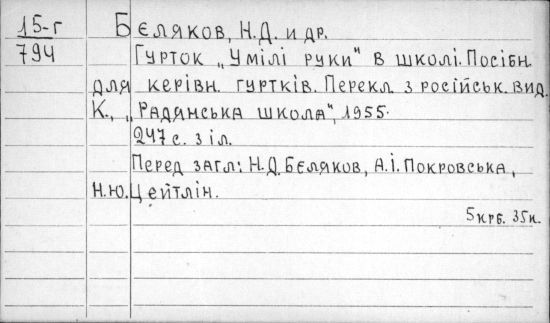 15-г Бєляков, Н.Д. и др.
794 Гурток „Умілі руки" в школі. Посібн.
для керівн. гуртків. Перекл. з російськ. вид.
К., „Радянська школа", 1955.
247 с. з іл.
Перед загл: Н.Д. Бєляков, А.І. Покровська,
Н.Ю. Цейтлін.
5 крб. 35 к.